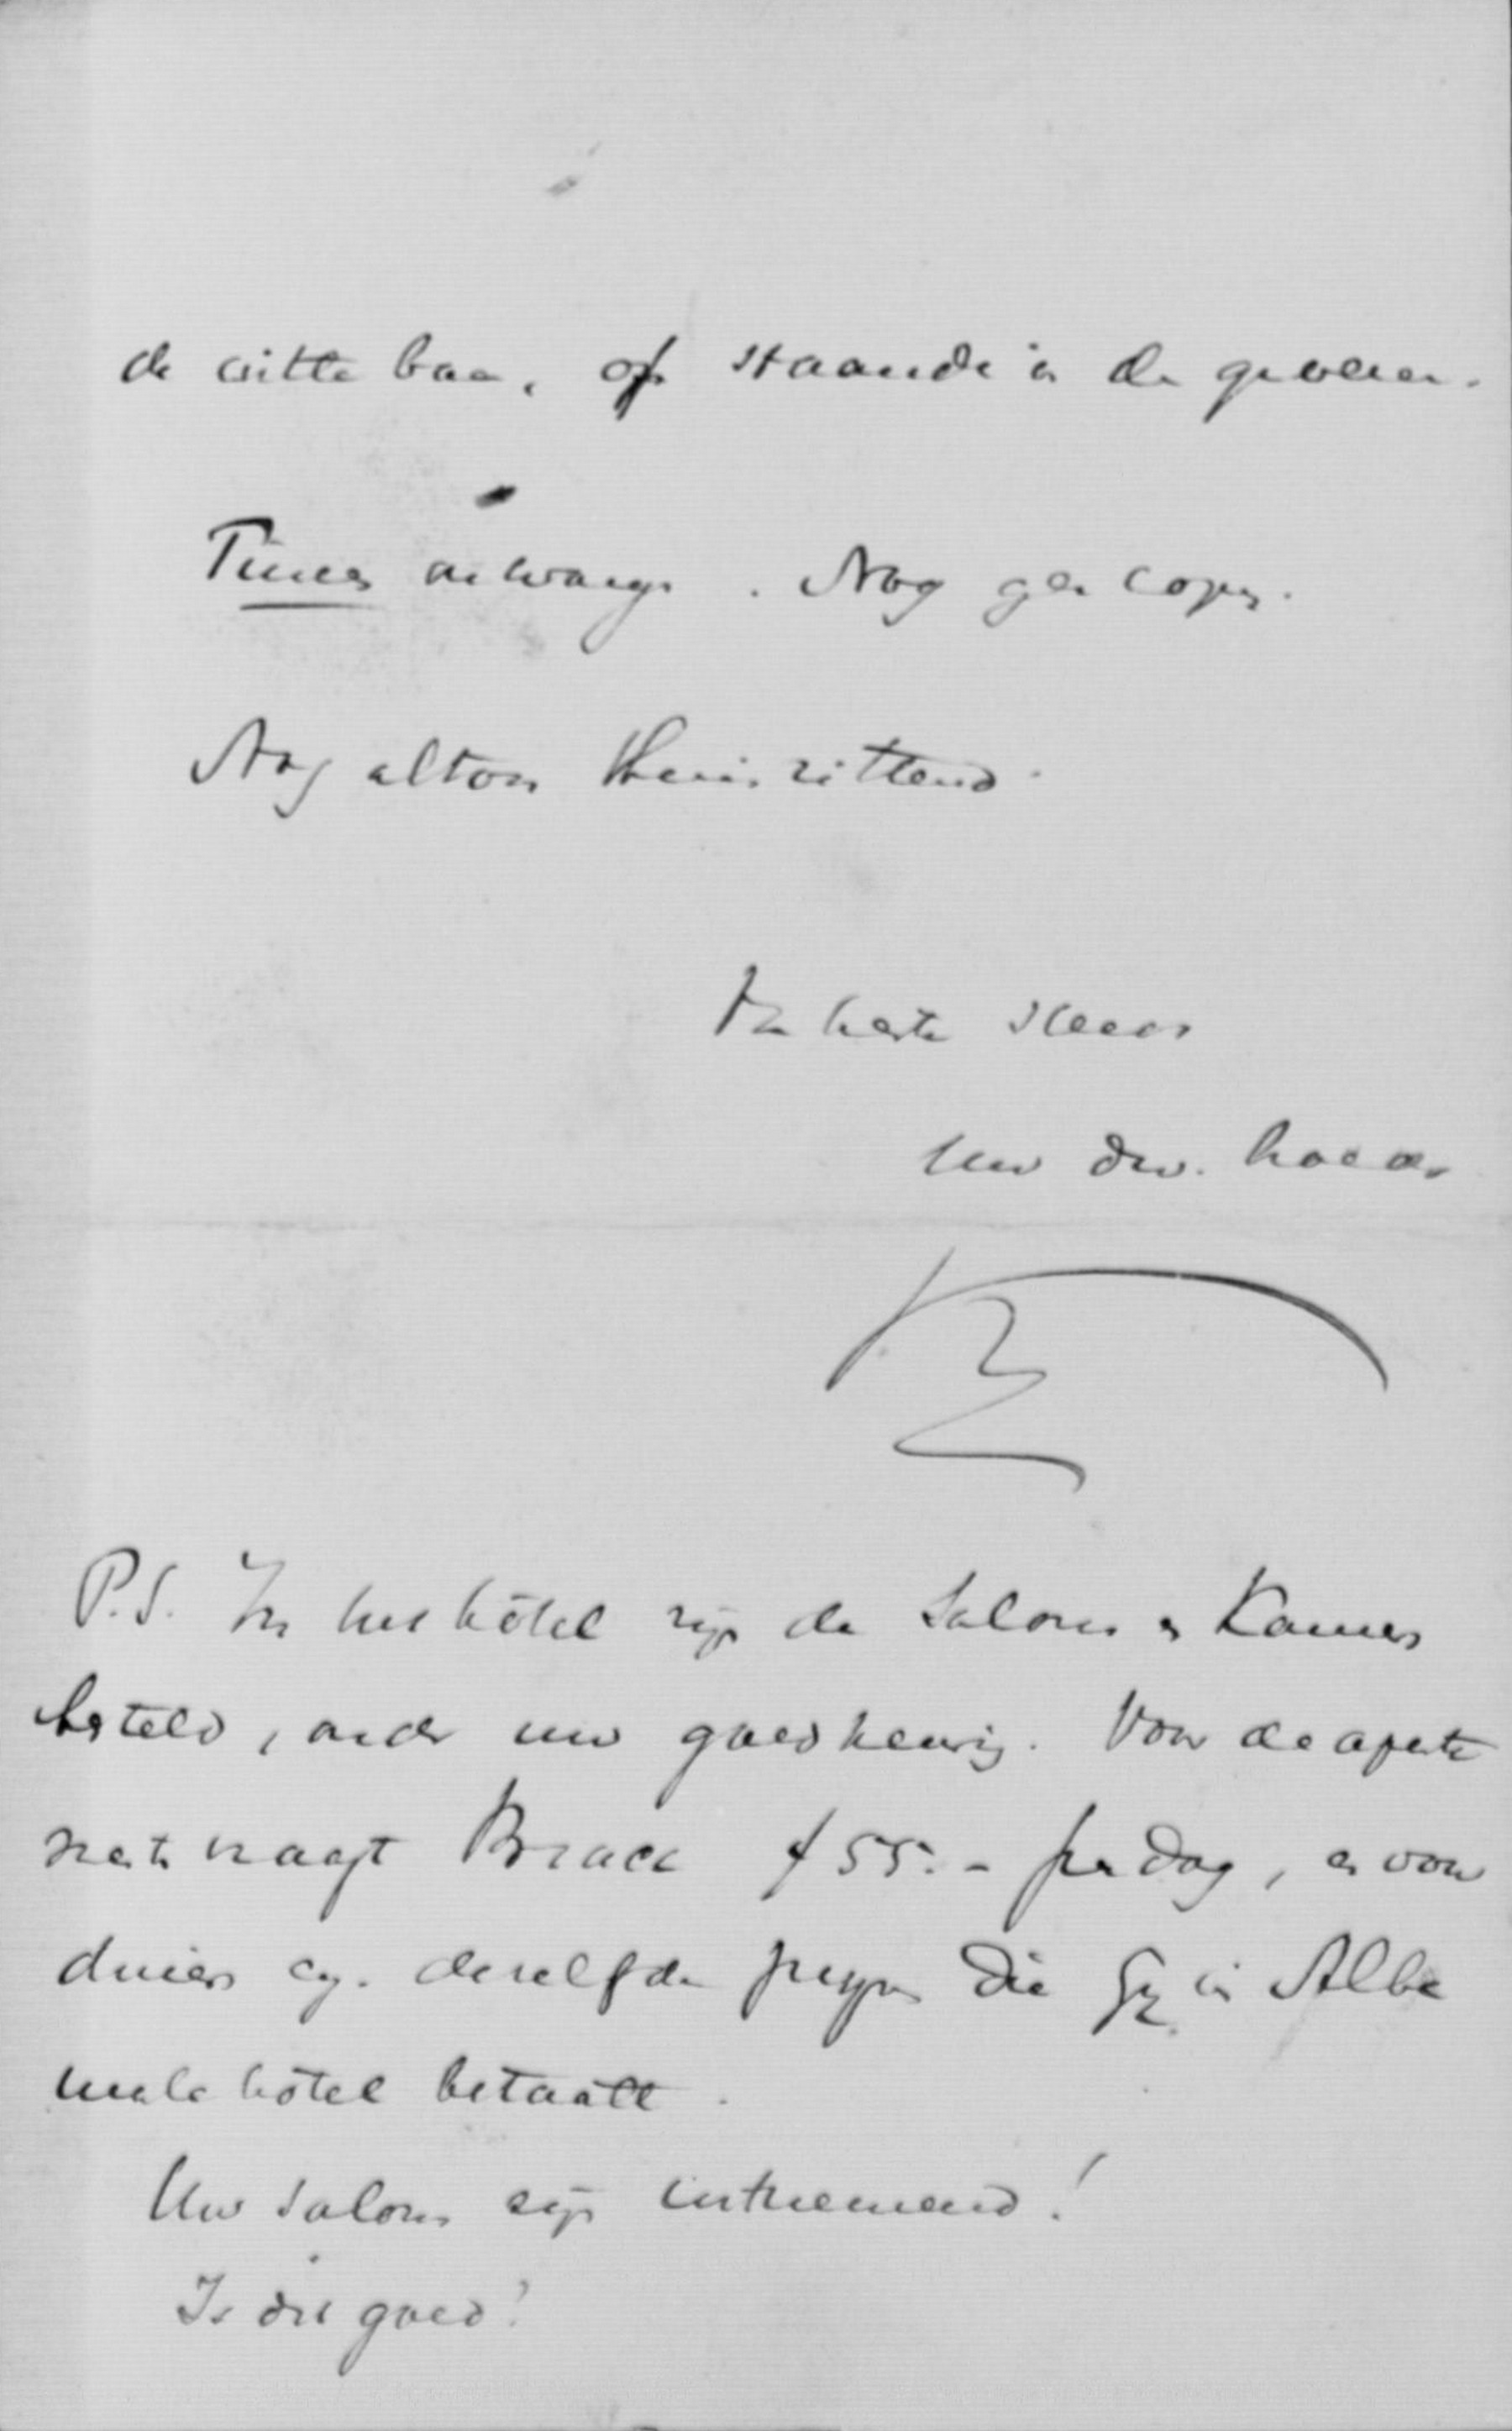 de witte baan, of staande in de geweren.
Times ontvangen. Nog geen copy.
Nog altoos thuiszittend.
Ten beste steeds
Uw dw.
P.S. In het hôtel zijn de Salons en Kamers
besteld, onder uw goedkeuring. Voor de aparte
vraagt f 55.- per dag, en voor
diners enz. dezelfde prijzen die Gij in Albe
male hôtel betaalt.
Uw salons zijn innemend!
Is dit goed?